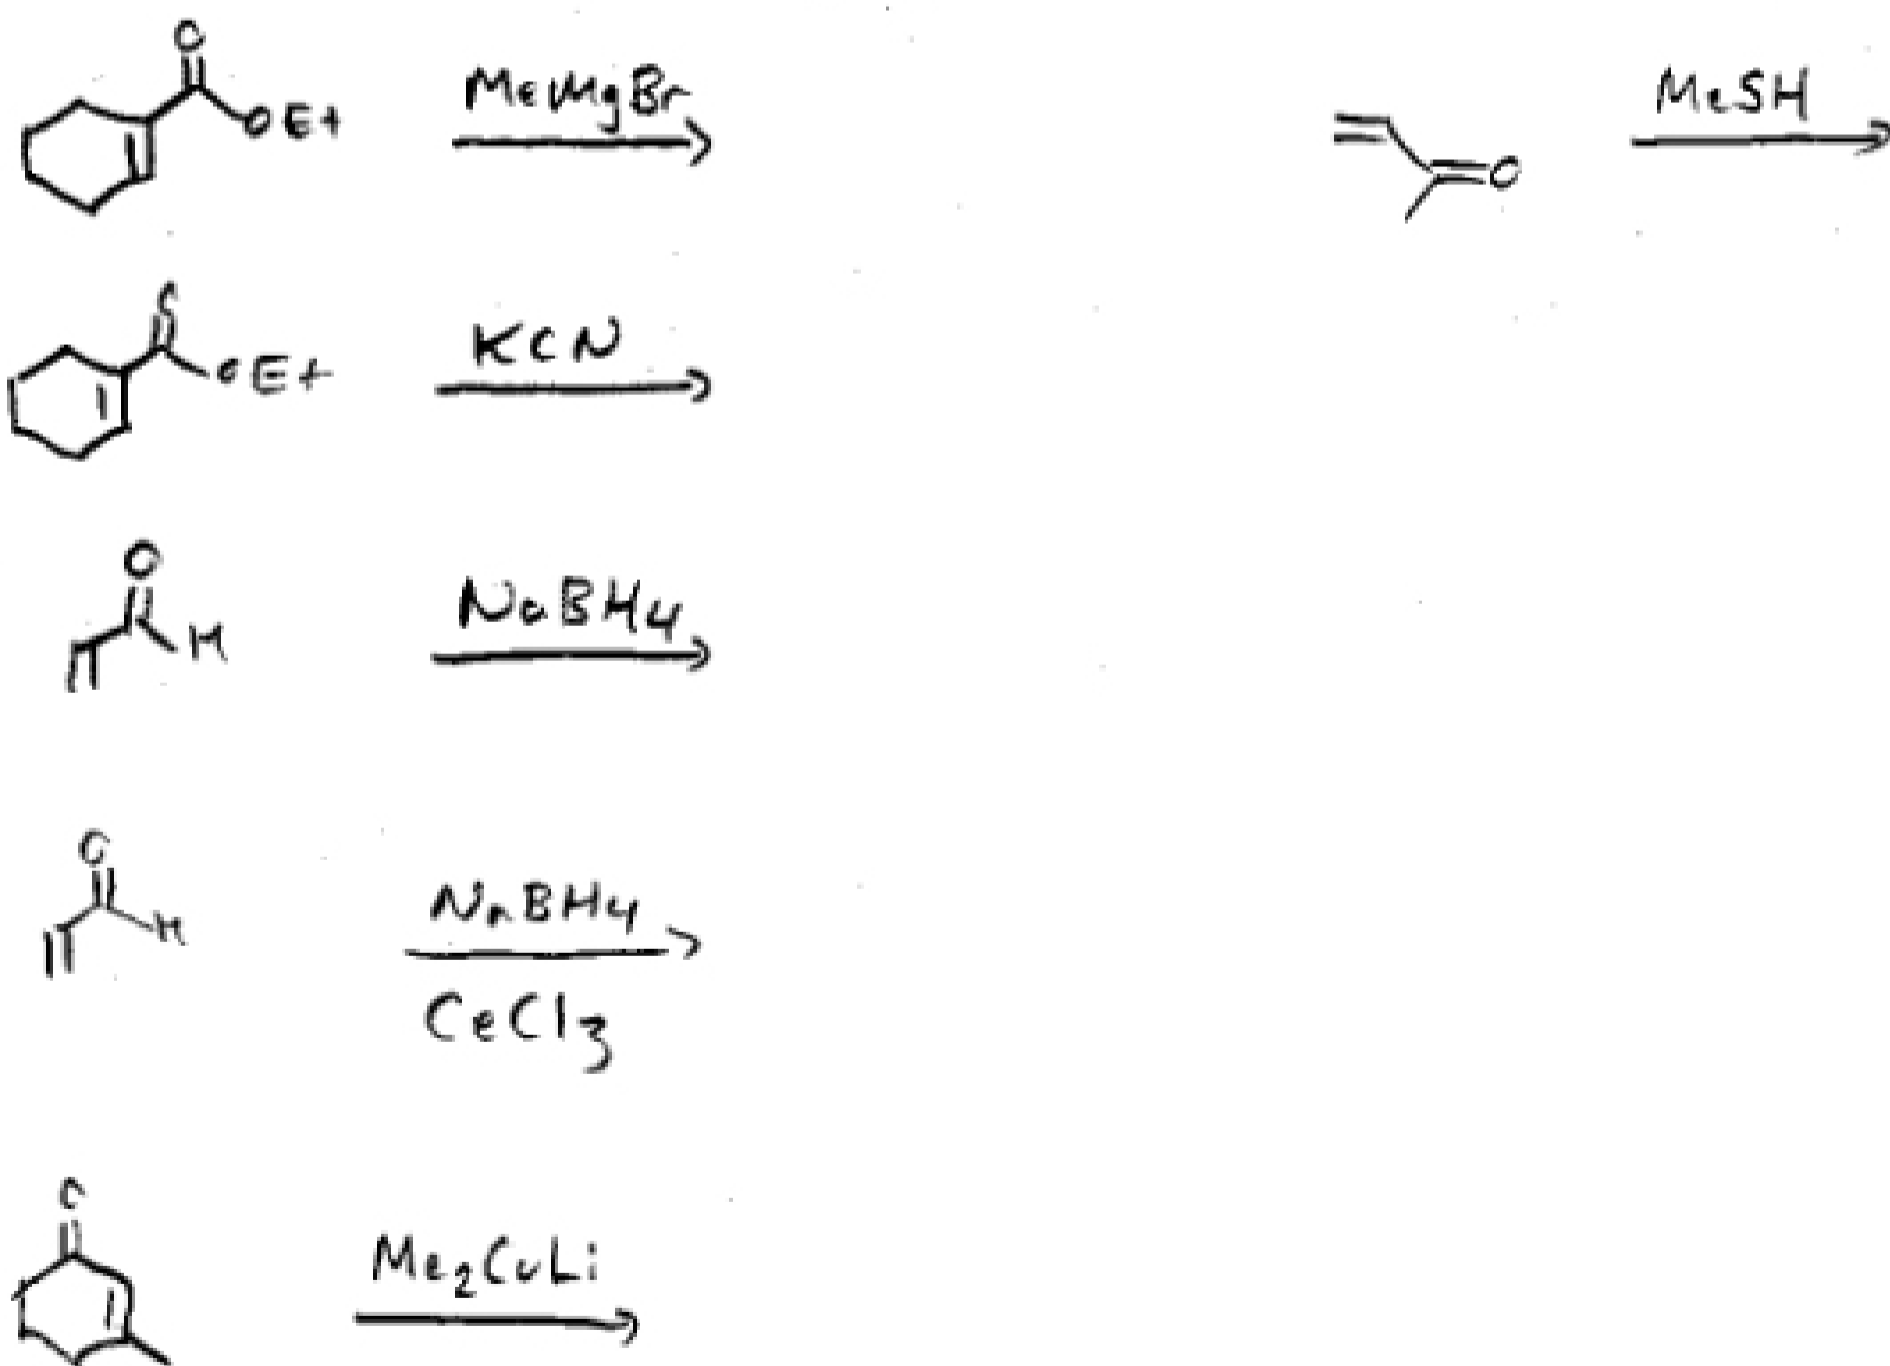 O
OEt
MeMgBr
O
MeSH
O
OEt
KCN
O
H
NaBH4
O
H
NaBH4
CeCl3
O
Me2CuLi